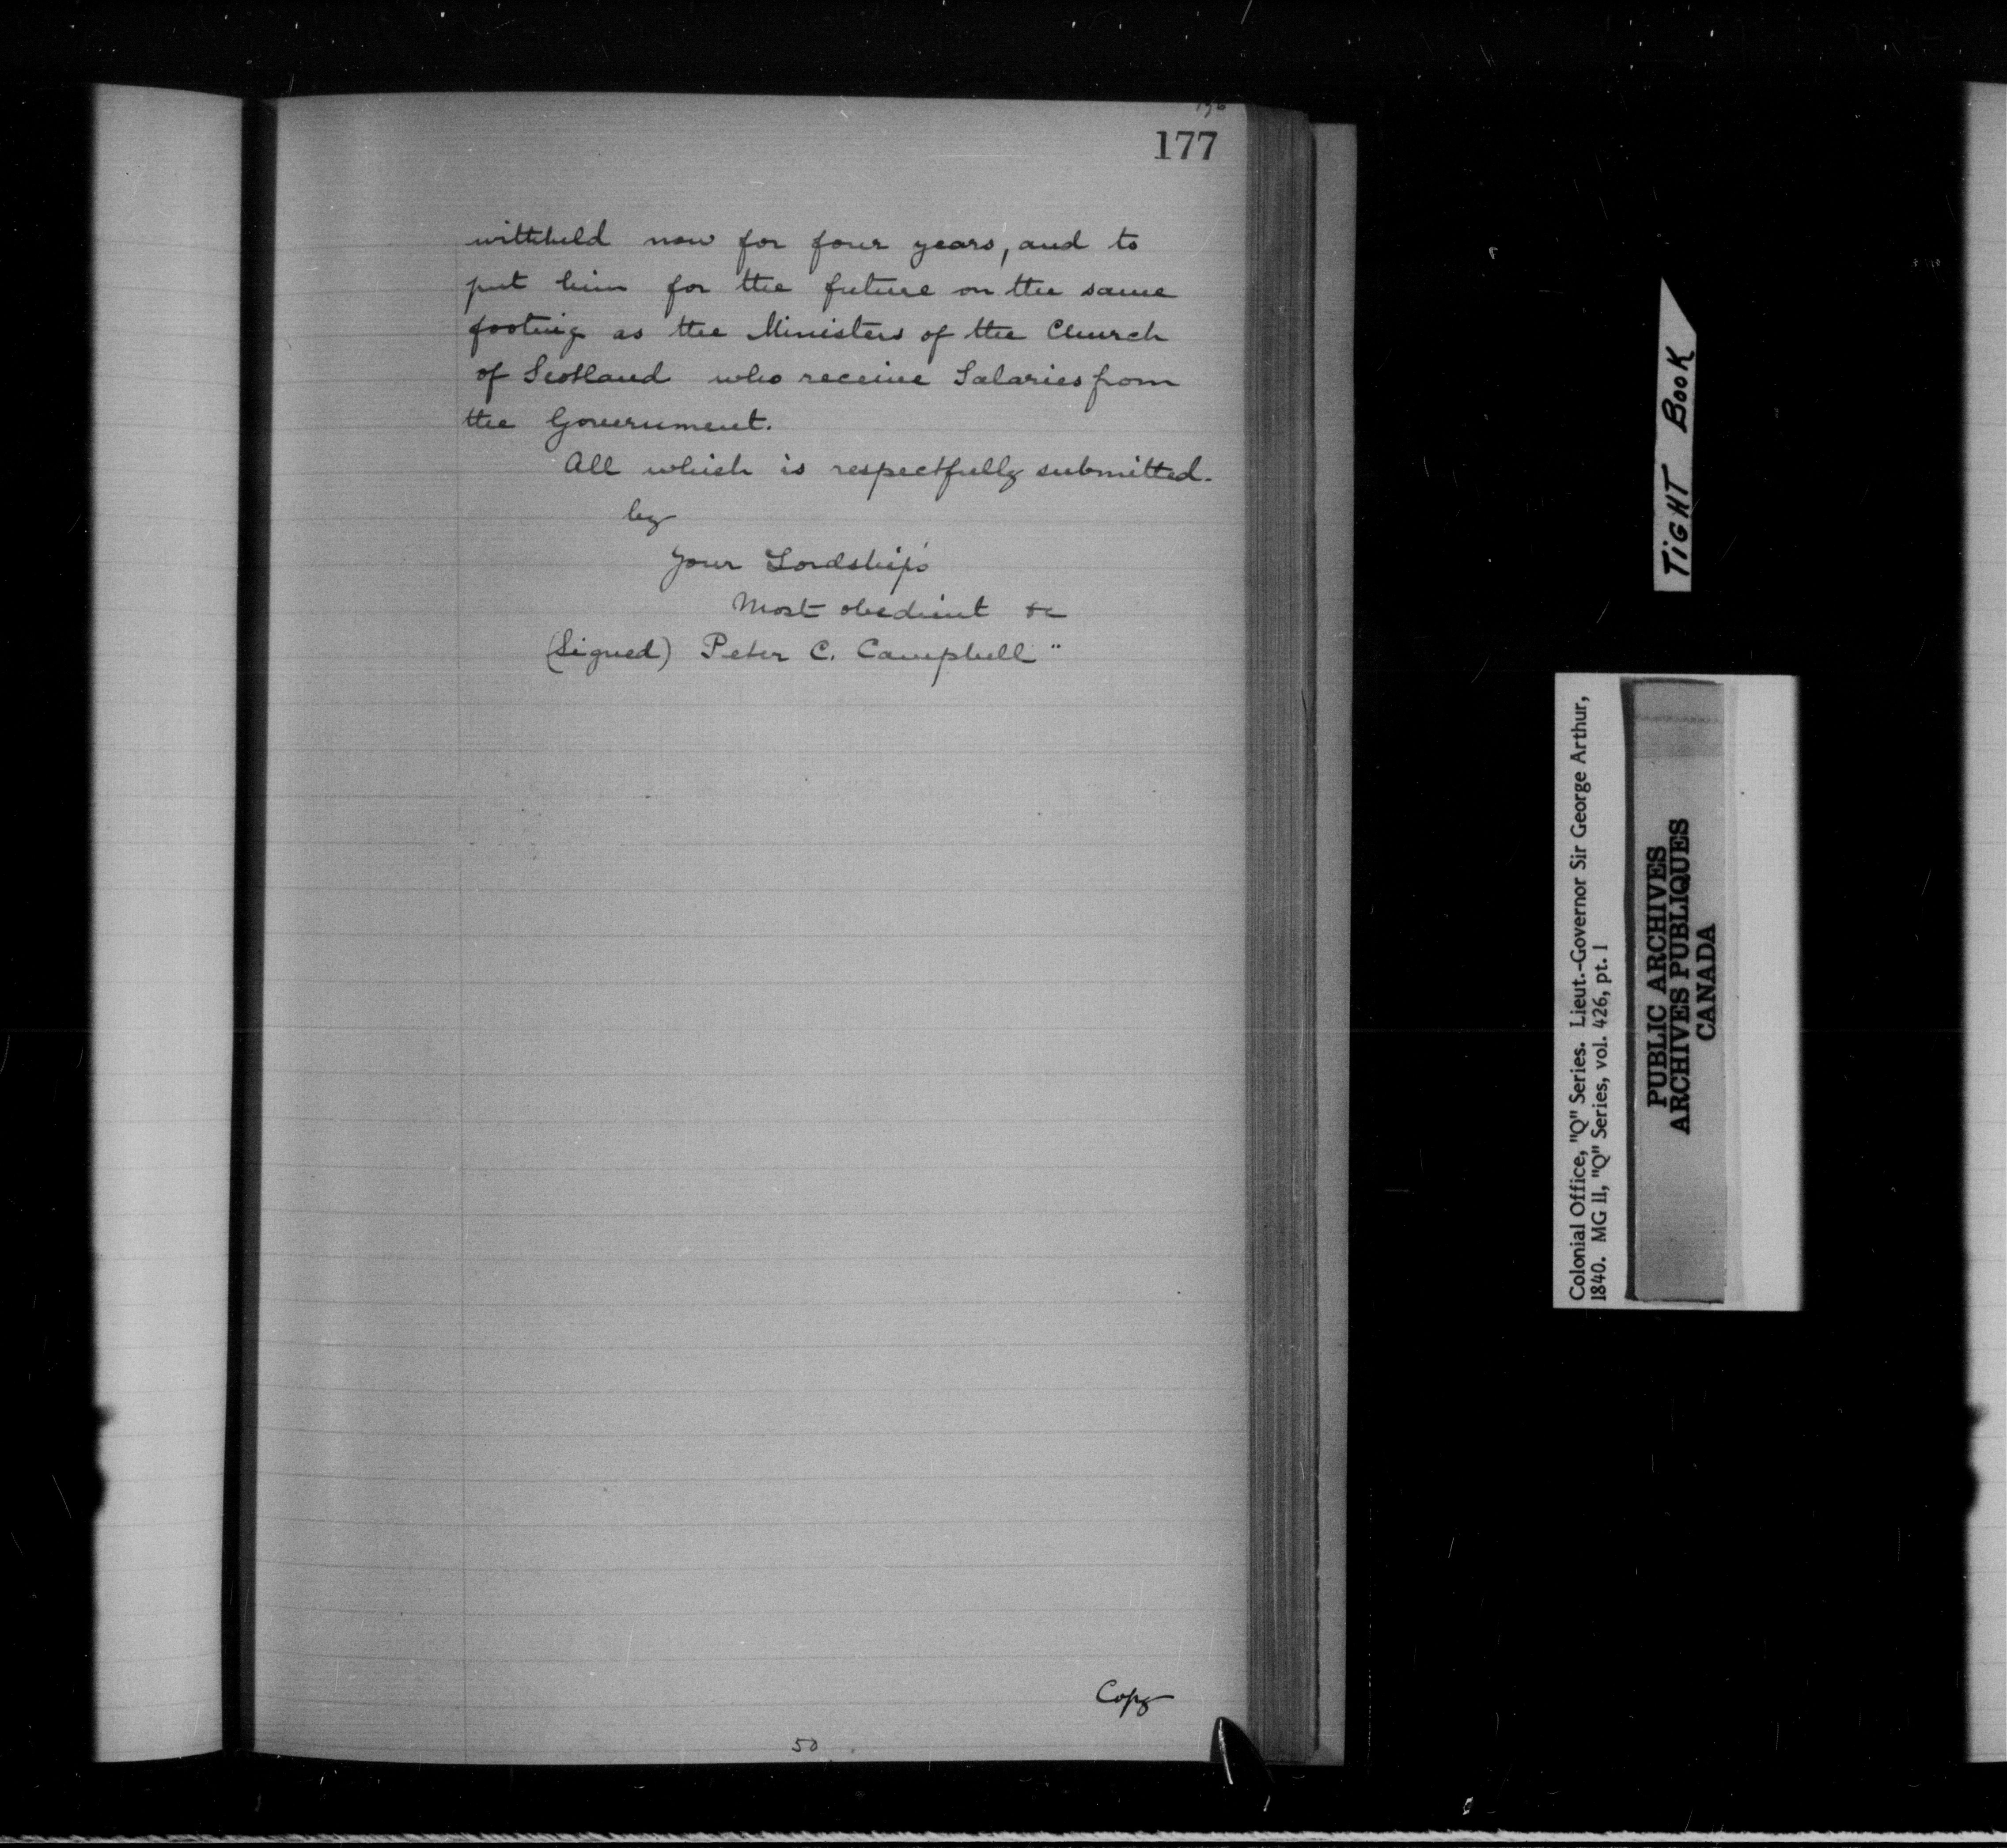 177
withheld now for four years, and to
put him for the future on the same
footing as the Ministers of the Church
of Scotland who receive Salaries from
the Government.
All which is respectfully submitted.
by
Your Lordship's
Most obedient &c
(Signed) Peter C. Campbell "
Copy
50
TIGHT BOOK
Colonial Office, "Q" Series. Lieut.-Governor Sir George Arthur,
1840. MG 11, "Q" Series, vol. 426, pt. 1
PUBLIC ARCHIVES
ARCHIVES PUBLIQUES
CANADA